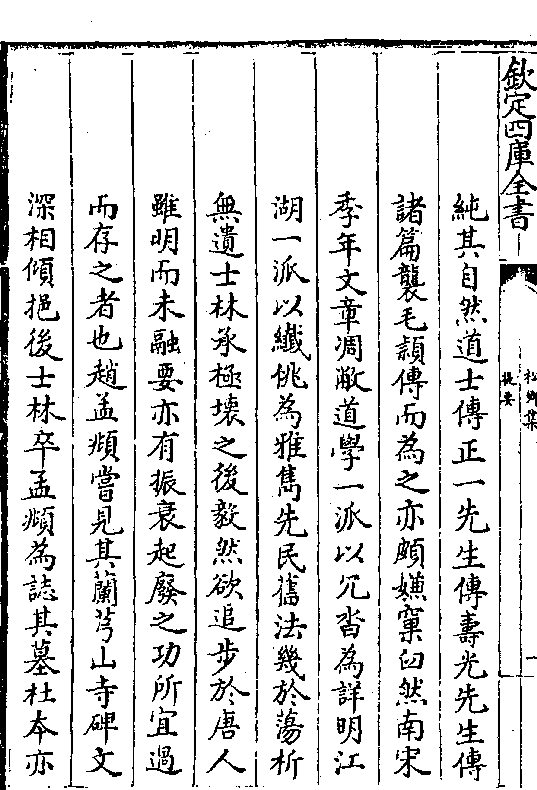 欽定四庫全書
松鄉集
提要
一
純其自然道士傳正一先生傳壽光先生傳
諸篇襲毛穎傳而為之亦頗嫌窠臼然南宋
季年文章凋敝道學一派以冗沓為詳明江
湖一派以纖佻為雅雋先民舊法幾於蕩析
無遺士林承極壞之後毅然欲追步於唐人
雖明而未融要亦有振衰起廢之功所宜過
而存之者也趙孟頫嘗見其蘭芎山寺碑文
深相傾挹後士林卒孟頫為誌其墓杜本亦